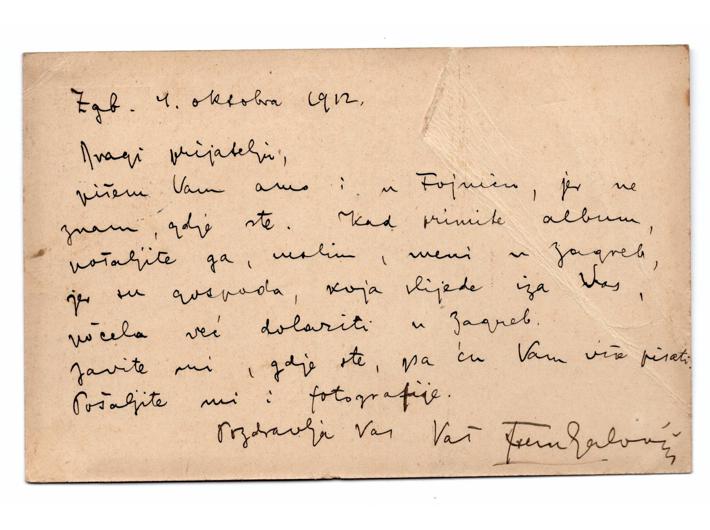 Zgb. 4. oktobra 1912.
Dragi prijatelju,
pišem Vam amo i u Fojnicu, jer ne
znam, gdje ste. Kad primite album,
pošaljite ga, molim, meni u Zagreb,
jer su gospoda, koja slijede iza Vas,
počela već dolaziti u Zagreb.
Javite mi, gdje ste, pa ću Vam više pisati.
Pošaljite mi i fotografije.
Pozdravlja Vas Vaš Fran Galović